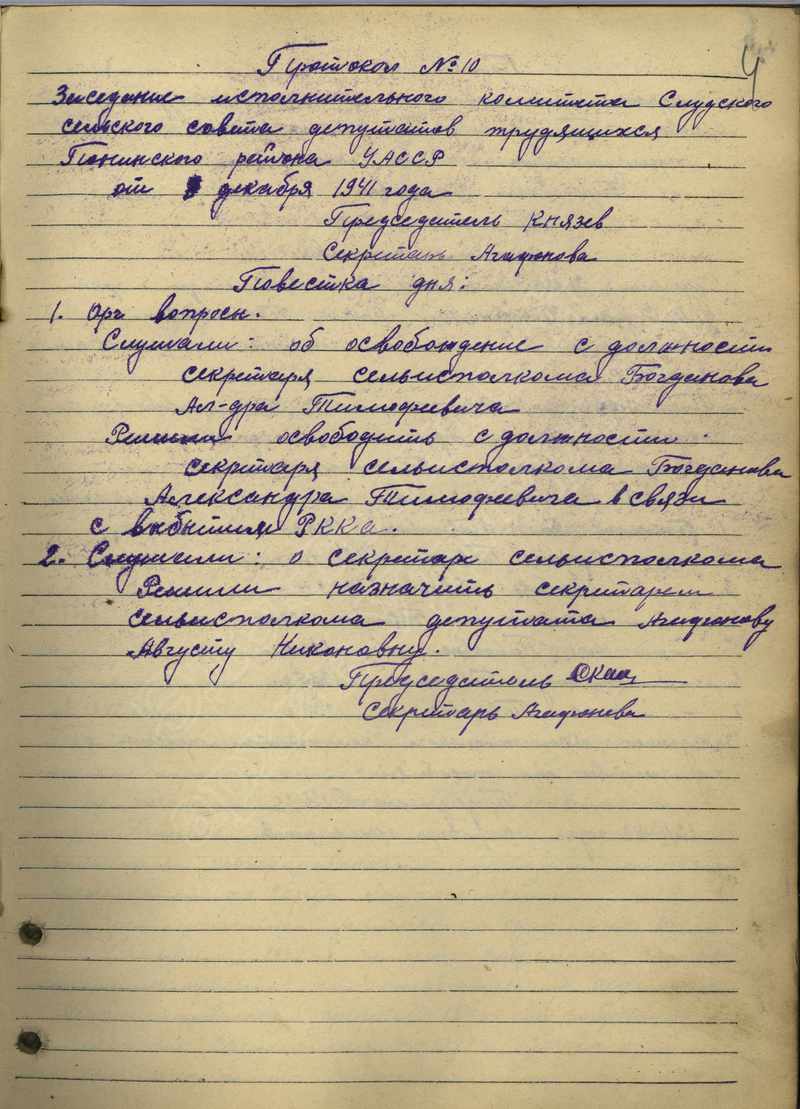 4
Протокол № 10
Заседание исполнительного комитета Слудского
сельского совета депутатов трудящихся
Понинского района УАССР
от декабря 1941 года
Председатель Князев
Секретарь Агафонова
Повестка дня:
1. Орг вопросы.
Слушали: об освобождение с должности
секретаря сельисполкома Богданова
Ал-дра Тимофеевича
Решили освободить с должности
секретаря сельисполкома Богданова
Александра Тимофеевича в связи
с выбытием РККА.
2. Слушали: о секретаре сельисполкома
Решили назначить секретарем
сельисполкома депутата Агафонову
Августу Никоновну.
Председатель
Секретарь Агафонова